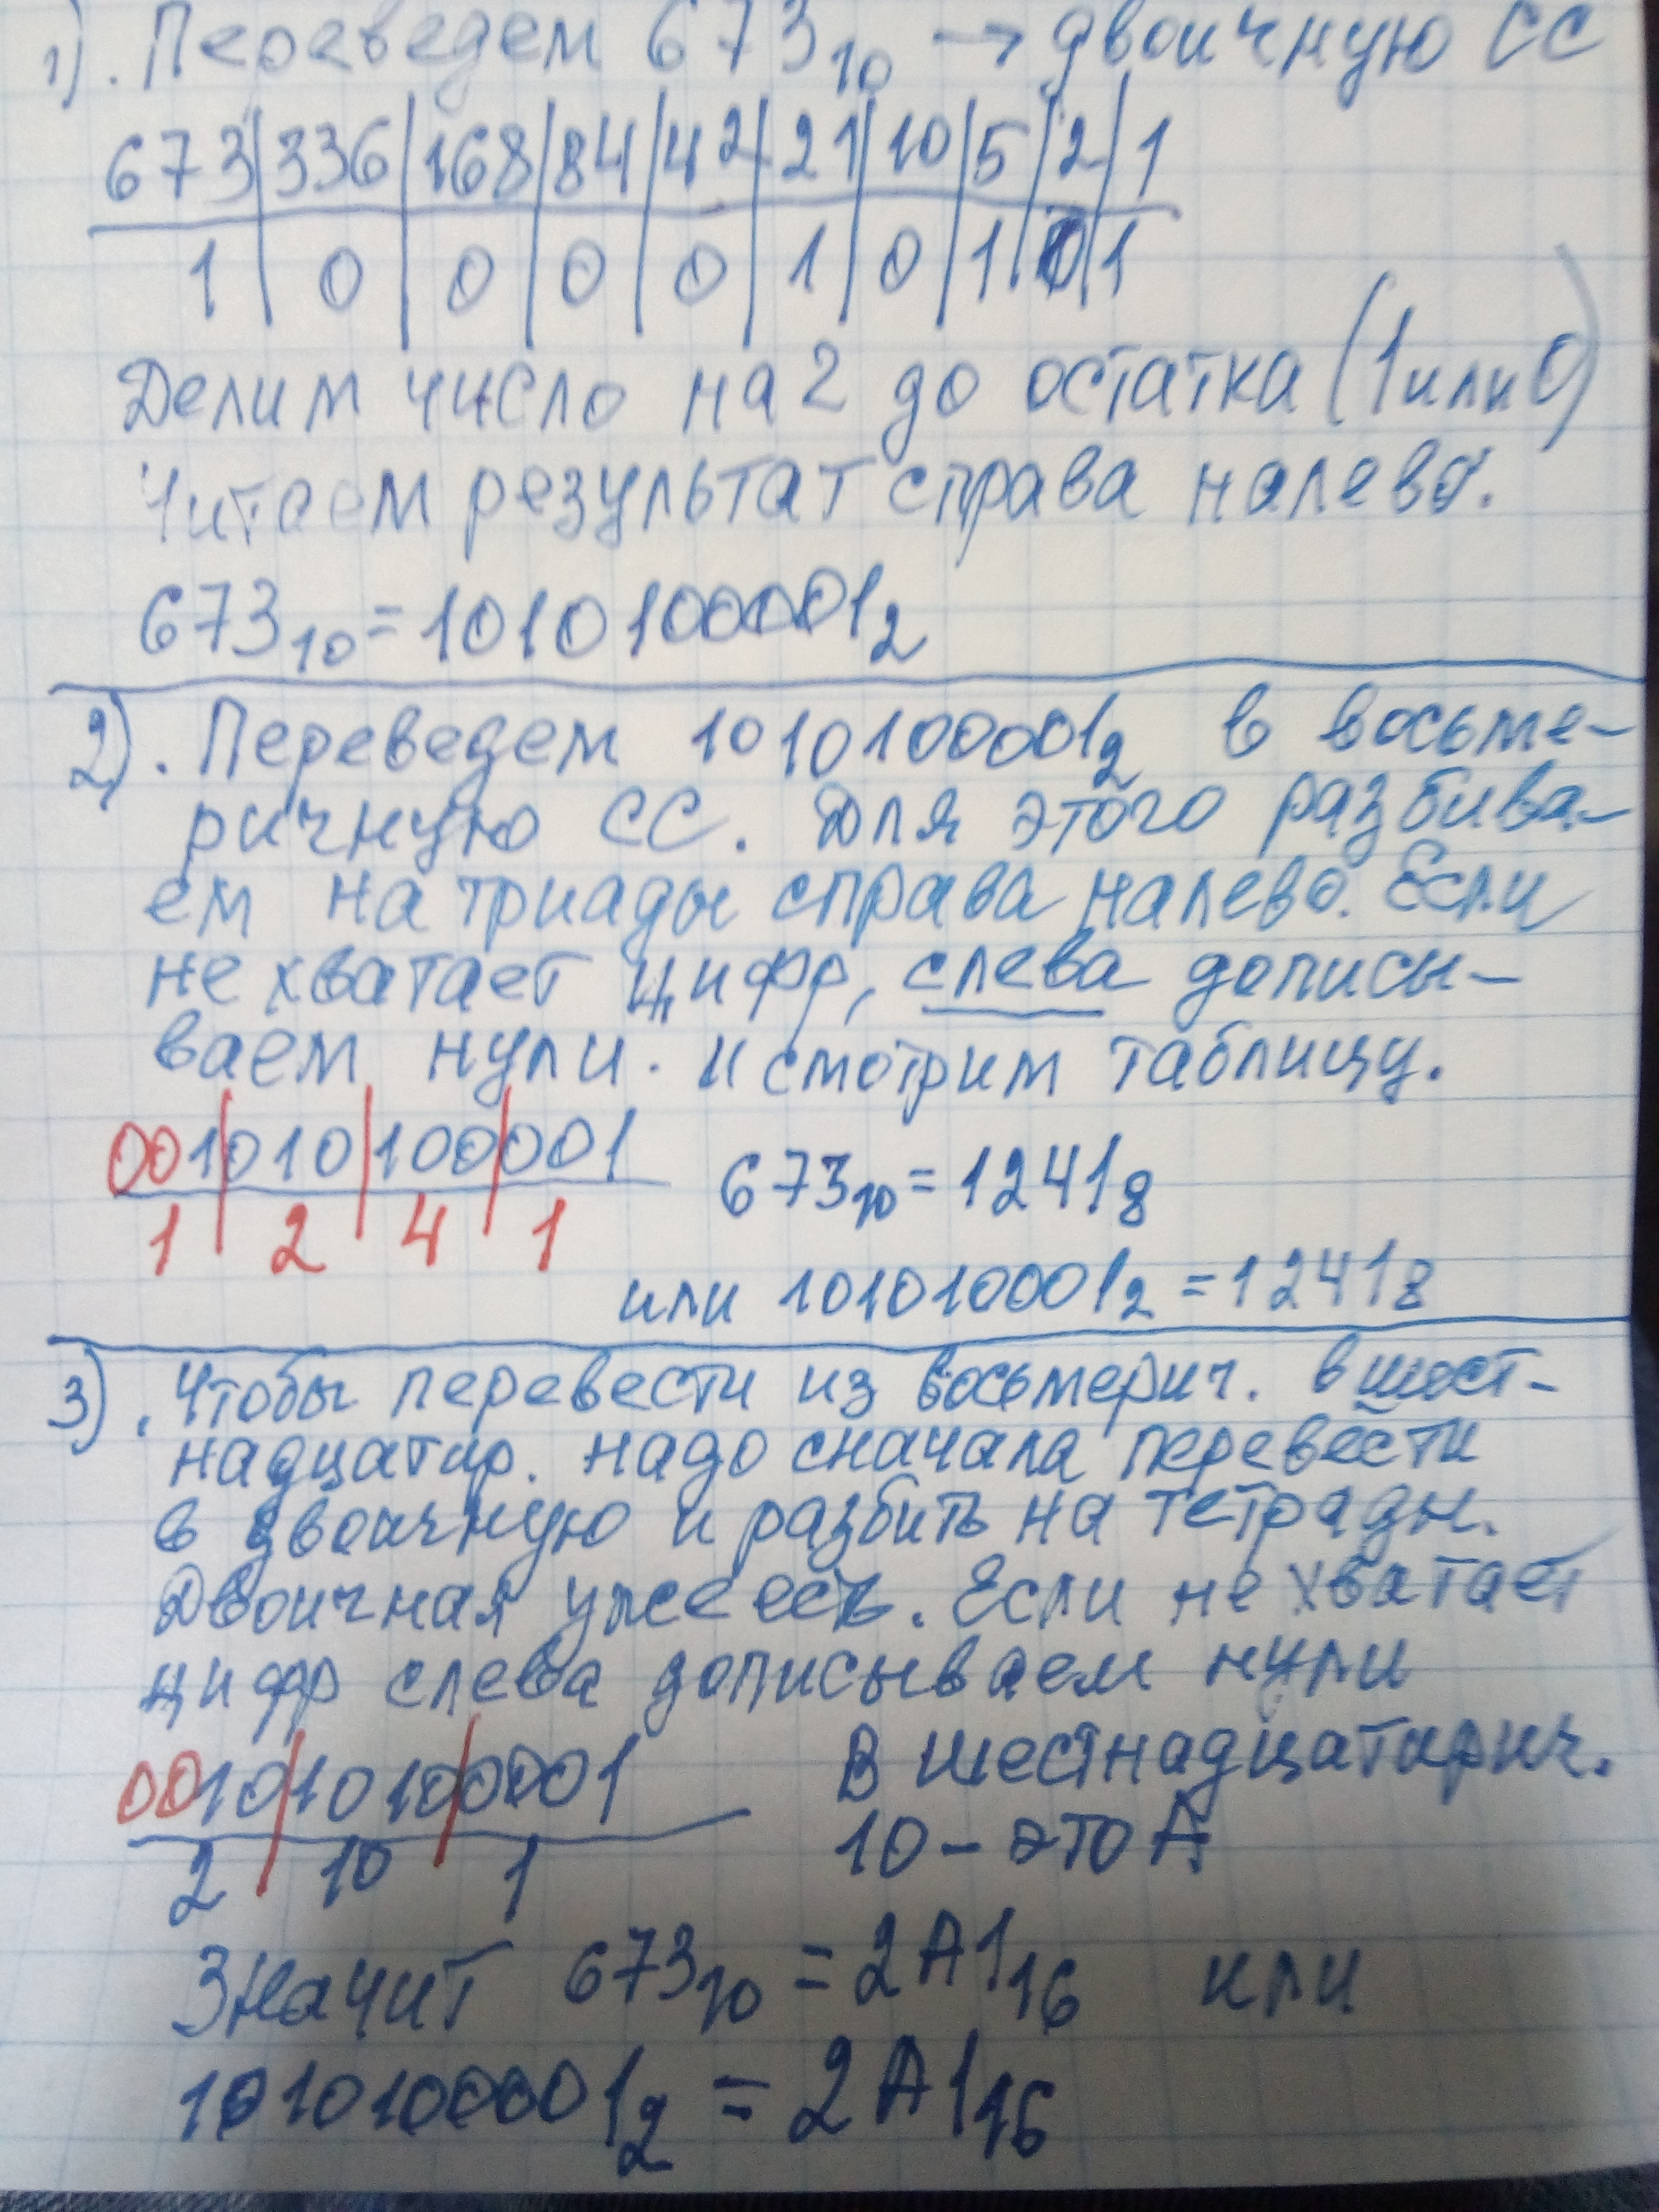 1). Переведем 673₁₀ → двоичную СС
673|336|168|84|42|21|10|5|2|1
1|0|0|0|0|1|0|1|0|1
Делим число на 2 до остатка (1 или 0)
Читаем результат справа налево.
673₁₀ = 1010100001₂
2). Переведем 1010100001₂ в восьме-
ричную СС. Для этого разбива-
ем на триады справа налево. Если
не хватает цифр, слева дописы-
ваем нули. и смотрим таблицу.
001|010|100|001
1|2|4|1
673₁₀ = 1241₈
или 1010100001₂ = 1241₈
3). Чтобы перевести из восьмерич. в шест-
надцатир. надо сначала перевести
в двоичную и разбить на тетрады.
Двоичная уже есть. Если не хватает
цифр слева дописываем нули
0010|1010|0001
2|10|1
В шестнадцатирич.
10 - это А
Значит 673₁₀ = 2A1₁₆ или
1010100001₂ = 2A1₁₆